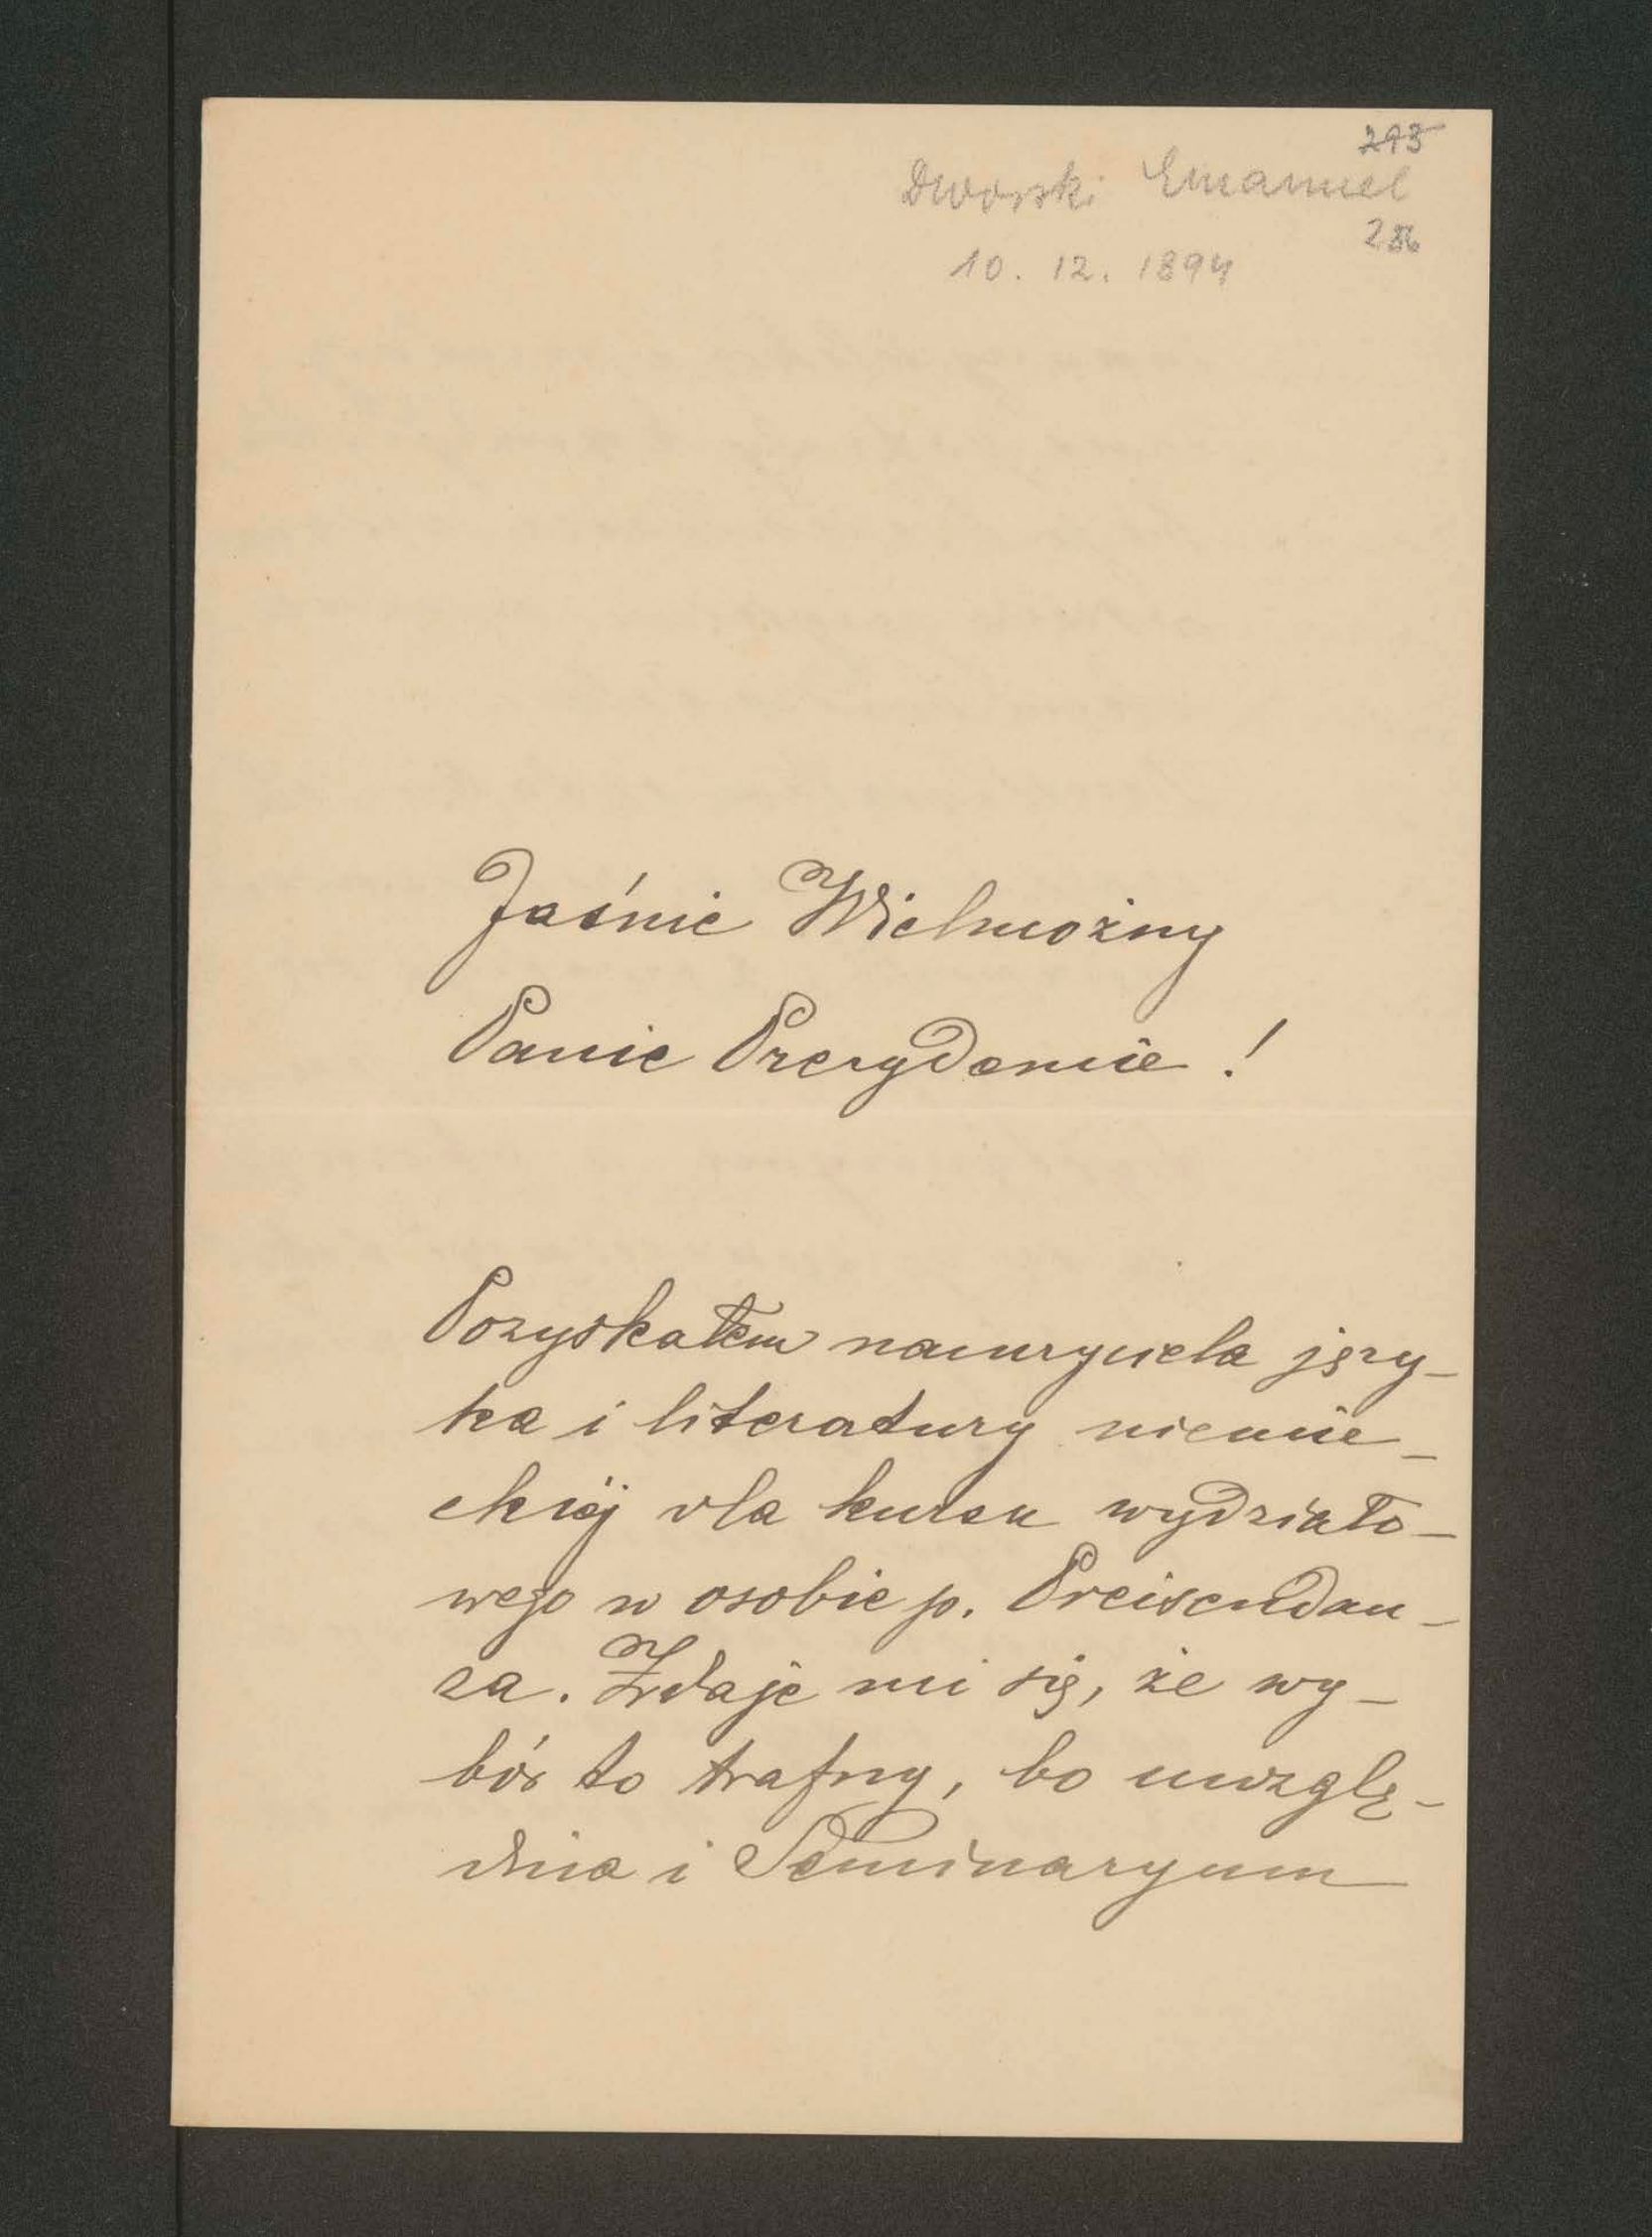 293
Dworski Emanuel
286
10. 12. 1894
Jaśnie Wielmożny
Panie Prezydencie!
Pozyskałem nauczyciela języ-
ka i literatury niemie-
ckiéj dla kursu wydziało-
wego w osobie p. Preisendan-
za. Zdaje mi się, że wy-
bór to trafny, bo uwzglę-
dnia i Seminaryum